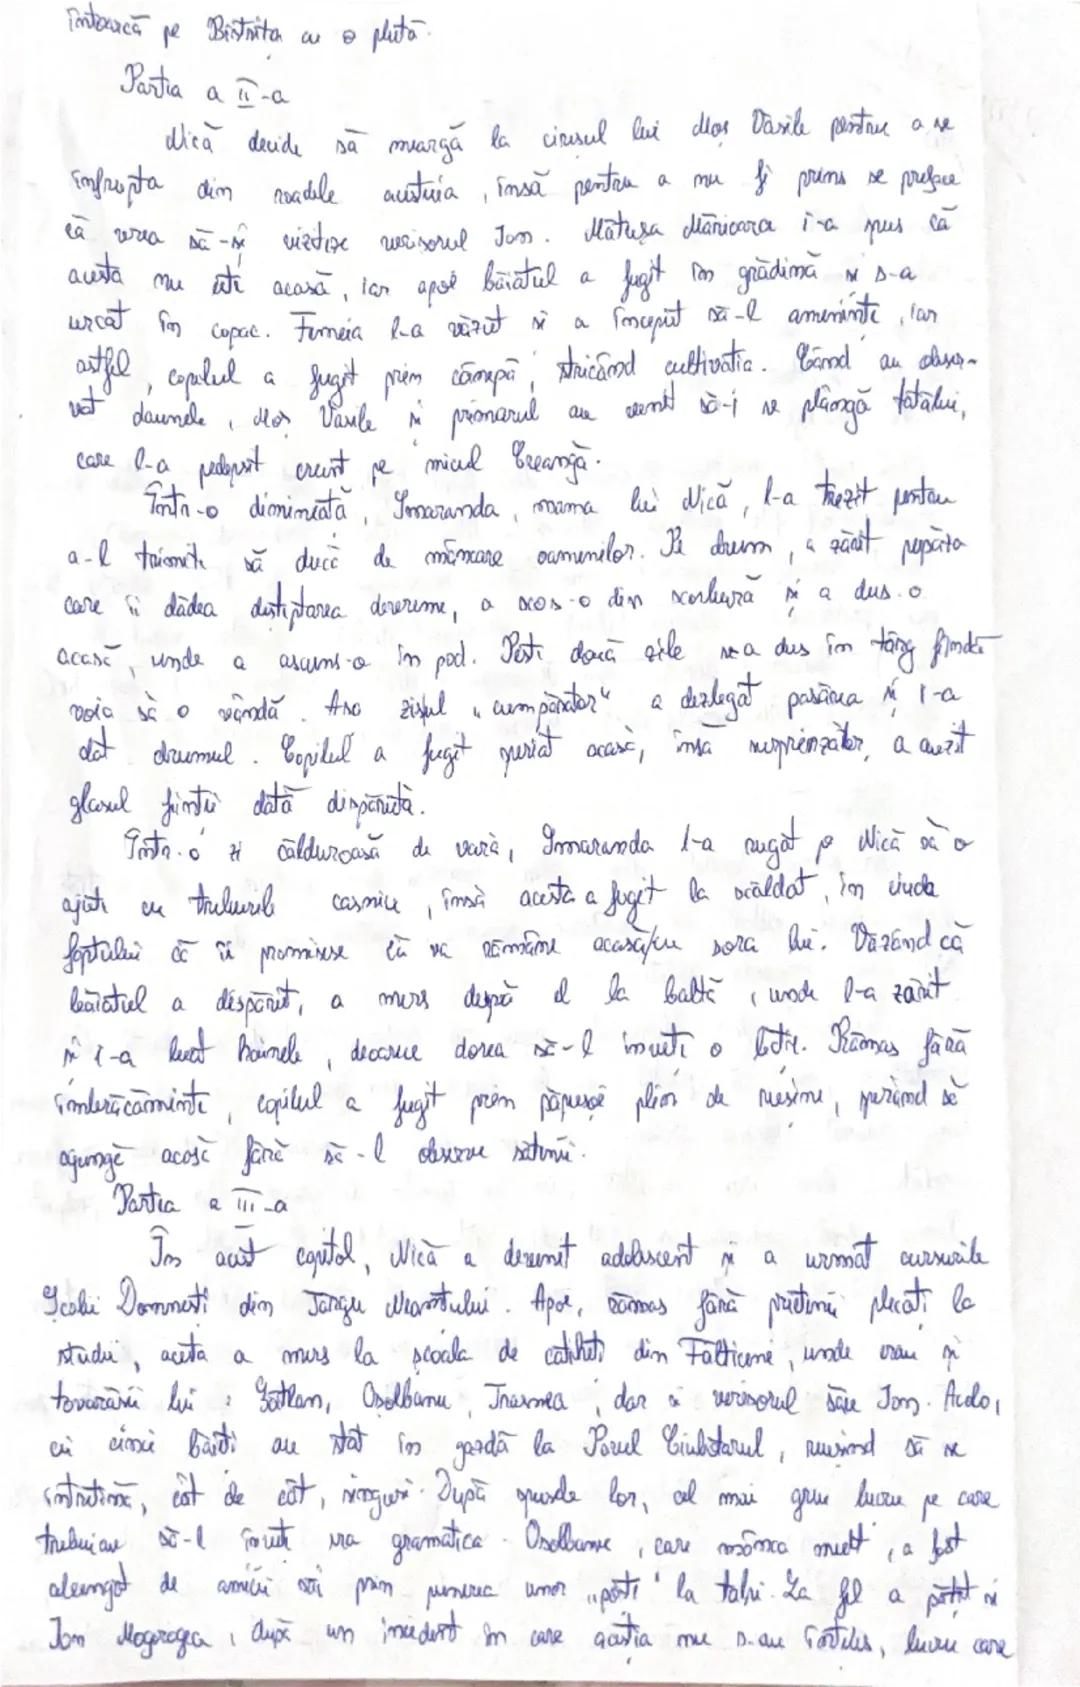 întoarcă pe Bistrita cu o plută.
Partia a II-a
Nică decide să meargă la cireșul lui Moș Vasile pentru a se
înfrupta din roadele acestuia, însă pentru a nu fi prins se preface
că vrea să-și viziteze verișorul Ion. Mătușa Măricara i-a spus că
acesta nu este acasă, iar apoi băiatul a fugit în grădină și s-a
urcat în copac. Femeia l-a văzut și a început să-l amenințe, iar
astfel, copilul a fugit prin cânepă, stricând cultivatia. Când au obser-
vat daunele, Moș Vasile și primarul au venit să-i se plângă tatălui,
care l-a pedepsit crunt pe micul Creangă.
Într-o dimineată, Smaranda, mama lui Nică, l-a trezit pentru
a-l trimite să ducă de mâncare oamenilor. Pe drum, a zărit pupăza
care îi dădea deșteptarea devreme, a scos-o din scorbură și a dus-o
acasă, unde a ascuns-o în pod. Peste două zile s-a dus în târg fiindcă
voia să o vândă. Aso zisul "cumpărător" a dezlegat pasărea și i-a
dat drumul. Copilul a fugit furiat acasă, însă surprinzător, a auzit
glasul ființei dată dispărută.
Într-o zi călduroasă de vară, Smaranda l-a rugat pe Nică să o
ajute cu treburile casnice, însă acesta a fugit la scăldat, în ciuda
faptului că îi promisese că va rămâne acasă cu sora lui. Văzând că
băiatul a dispărut, a mers după el la baltă, unde l-a zărit
și i-a luat hainele, deoarece dorea să-l învețe o lecție. Rămas fără
îmbrăcăminte, copilul a fugit prin păpușoi plin de rușine, sperând să
ajungă acasă fără să-l observe sătenii.
Partea a III-a
În acest capitol, Nică a devenit adolescent și a urmat cursurile
Școlii Domnești din Târgu Neamțului. Apoi, rămas fără prietenii plecați la
studii, acesta a mers la școala de catiheți din Fălticeni, unde erau și
tovarășii lui: Gâtlan, Oșlobanu, Trăsnea, dar și verișorul său Ion. Acolo,
cei cinci băieți au stat în gazdă la Pavel Ciubotarul, reușind să se
întrețină, cât de cât, singuri. După spusele lor, cel mai greu lucru pe care
trebuiau să-l învețe era gramatica. Oșlobanu, care mânca mult, a fost
alungat de amicii săi prin punerea unor "poști" la tălpi. La fel a pățit și
Ion Mogorogea, după un incident în care aceștia nu s-au înțeles, lucru care